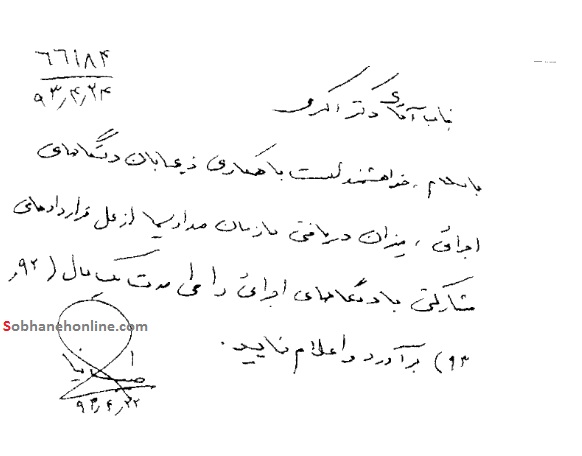 ۶۶۱۸۴
۹۳٫۴٫۲۴
جناب آقای دکتر اکرمی
با سلام، خواهشمند است با همکاری ذیحسابان دستگاههای
اجرائی، میزان دریافتی سازمان صدا و سیما از محل قراردادهای
مشارکتی با دستگاههای اجرائی را طی مدت یک سال (۹۲،
۹۳) برآورد و اعلام نمایید.
Sobhanehonline.com
۹۳٫۴٫۲۲